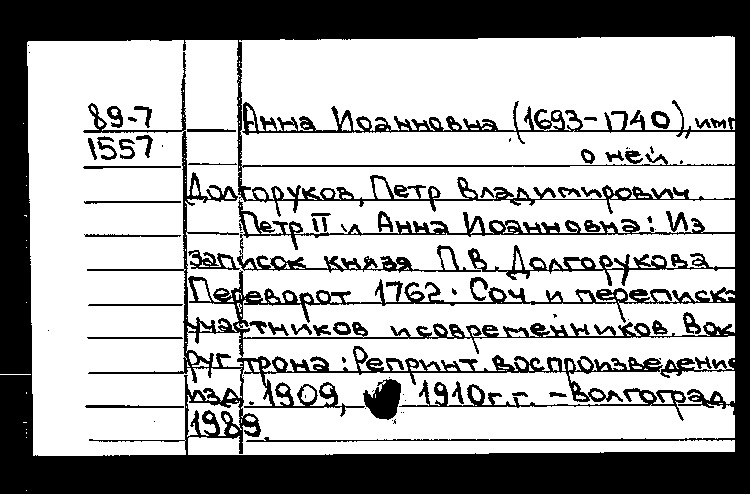 89-7 Анна Иоанновна (1693-1740), имп
1557 о ней.
Долгоруков, Петр Владимирович.
Петр II и Анна Иоанновна: Из
записок князя П.В. Долгорукова.
Переворот 1762: Соч. и переписка
участников и современников. Вок
руг трона: Репринт. воспроизведение
изд. 1909, 1910г.г. - Волгоград,
1989.